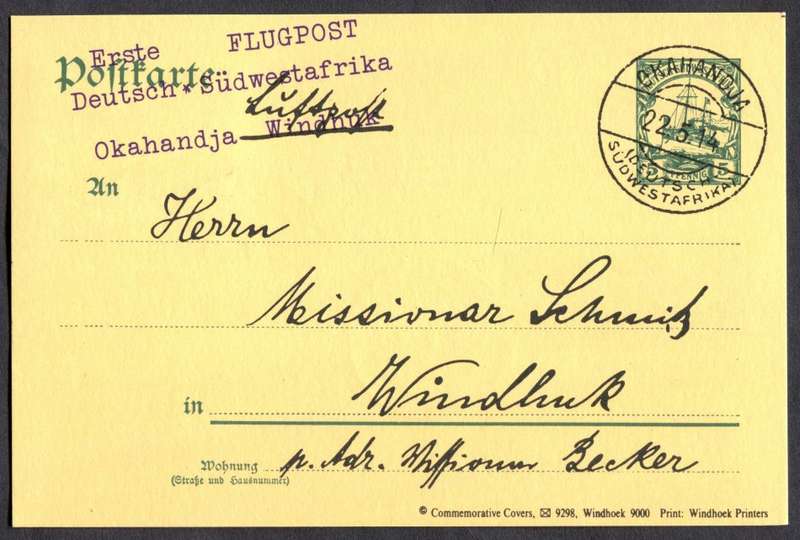 Erste FLUGPOST
Postkarte
Deutsch*Südwestafrika
Luftpost
Okahandja Windhuk
OKAHANDJA
22.5.14
(DEUTSCH-
SÜDWESTAFRIKA)
5 PFENNIG 5
An
Herrn
Missionar Schmitz
in Windhuk
Wohnung p. Adr. Missionar Becker
(Straße und Hausnummer)
© Commemorative Covers, ✉ 9298, Windhoek 9000 Print: Windhoek Printers